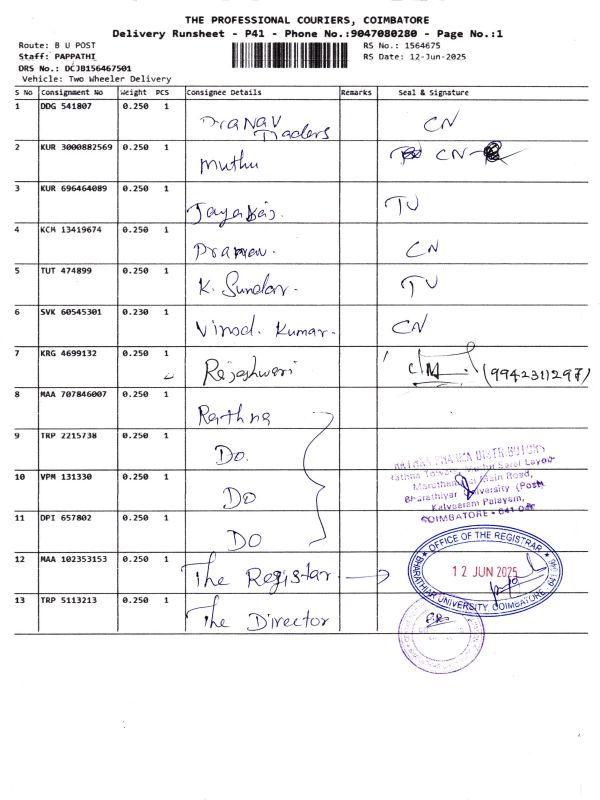 THE PROFESSIONAL COURIERS, COIMBATORE
Delivery Runsheet - P41 - Phone No.:9047080280 - Page No.:1
Route: B U POST
RS No.: 1564675
Staff: PAPPATHI
RS Date: 12-Jun-2025
DRS No.: DCJB156467501
Vehicle: Two Wheeler Delivery
S No Consignment No Weight PCS Consignee Details Remarks Seal & Signature
1 DDG 541807 0.250 1 Pranav Traders CN
2 KUR 3000882569 0.250 1 Muthu CN
3 KUR 696464089 0.250 1 Jayaraj. TU
4 KCM 13419674 0.250 1 Pranav. CN
5 TUT 474899 0.250 1 K. Sundar. TU
6 SVK 60545301 0.230 1 Vinod. Kumar. CN
7 KRG 4699132 0.250 1 Rajeshwari (9942311297)
8 MAA 707846007 0.250 1 Rathna
9 TRP 2215738 0.250 1 Do.
10 VPM 131330 0.250 1 Do
11 DPI 657802 0.250 1 Do
RATHNA PHARMA DISTRIBUTORS
Rathna Tower, Layout
Main Road,
Bharathiyar University (Post)
Kalveeram Palayam,
COIMBATORE - 641 046
12 MAA 102353153 0.250 1 The Registar
OFFICE OF THE REGISTRAR
12 JUN 2025
BHARATHIAR UNIVERSITY COIMBATORE - 641 046
13 TRP 5113213 0.250 1 The Director